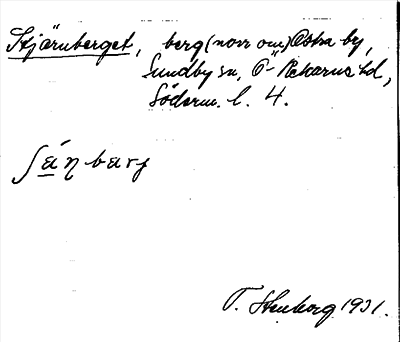 Stjärnberget, berg (norr om) Östra by,
Sundby sn, Ö-Rekarne hd,
Söderm. l. 4.
ʃä́ŋbarj
T. Stenborg 1931.